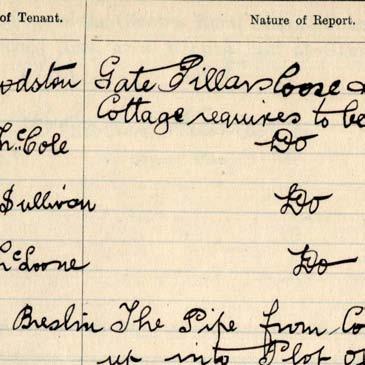 of Tenant. Nature of Report.
odston Gate Pillars loose &
Cottage requires to be
McCole Do
Sullivan Do
McLoone Do
Breslin The Pipe from Co
up into Plot of